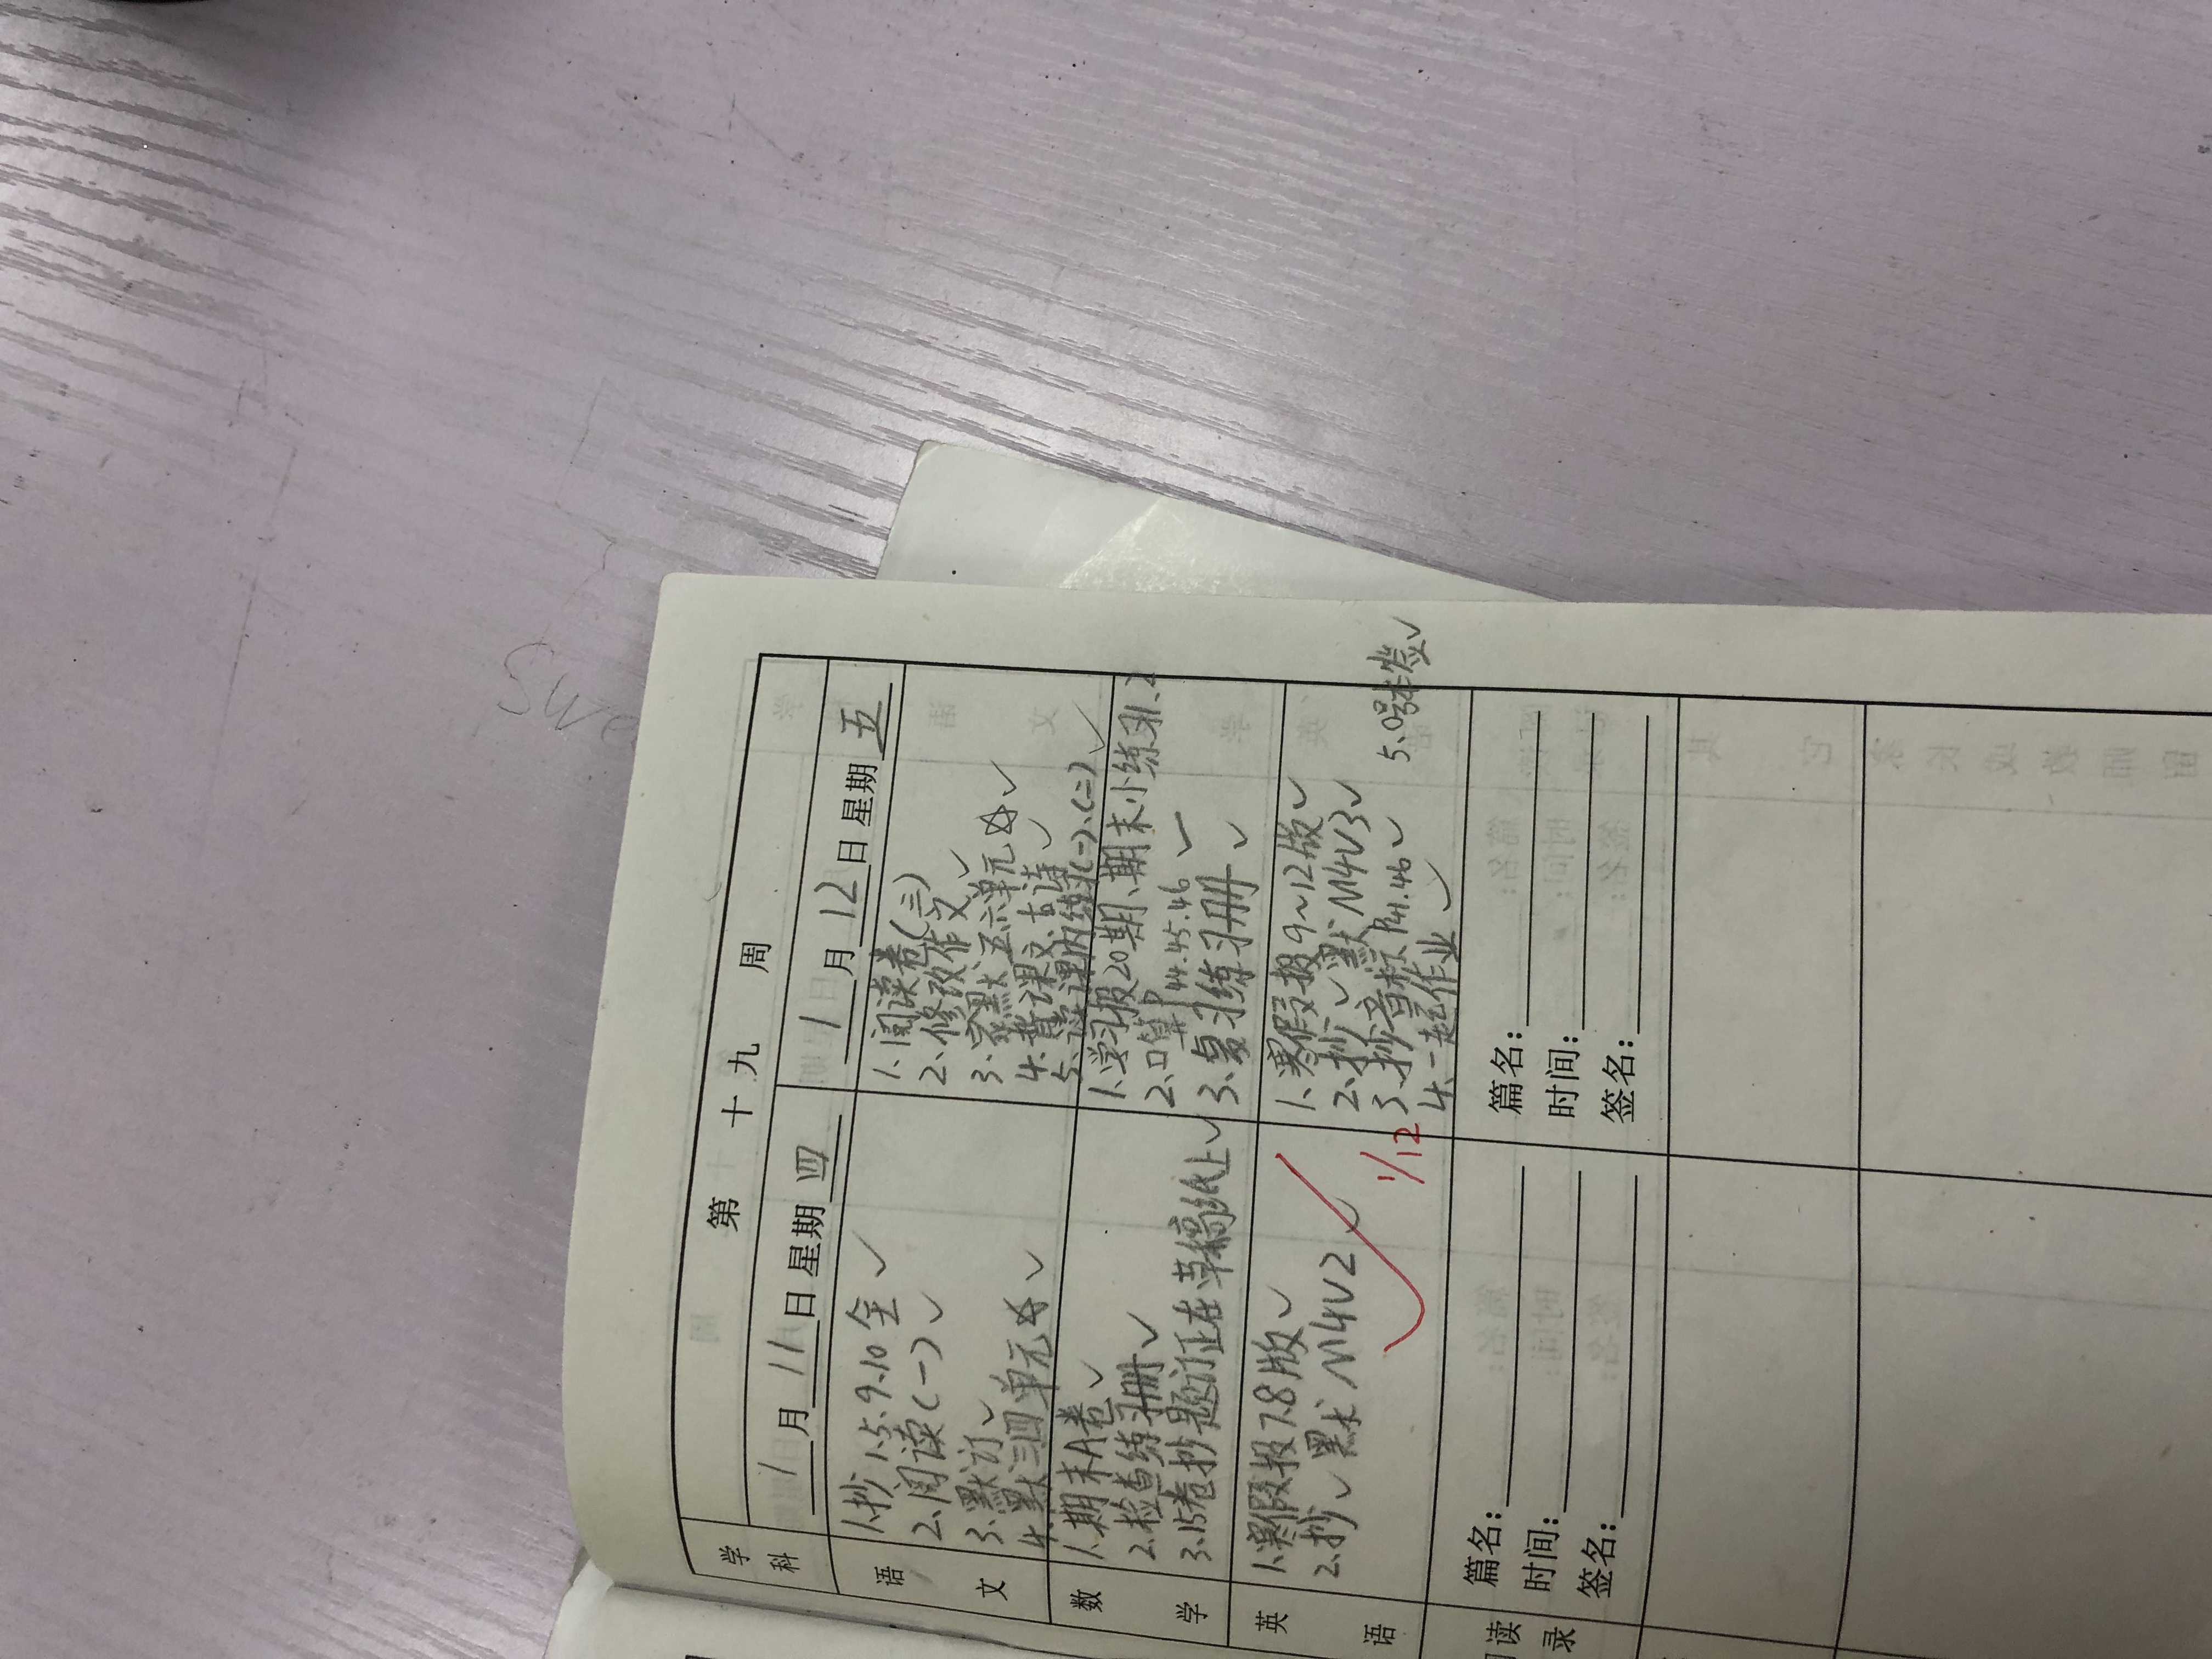 第十九周
学科
1月11日星期四
1月12日星期五
语文
1.抄1.5.9.10全✓
2.阅读(一)✓
3.默订✓
4.默三四单元☆✓
1.阅读卷(三)
2.修改作文✓
3.家默五.六单元☆✓
4.背课文、古诗✓
5.课内练(一)、(二)✓
数学
1.期末A卷✓
2.检查练习册✓
3.15卷抄题订正在草稿纸上✓
1.学习报20期、期末小练习1.2
2.口算P44.45.46✓
3.复习练习册✓
英语
1.寒假报7.8版✓
2.抄✓默M4V2✓
1/12
1.寒假报9~12版✓
2.抄✓默M4V3✓
3.抄音标P41.46✓
4.一起作业✓
5.0号本签✓
读
录
篇名:
时间:
签名:
篇名:
时间:
签名:
SW